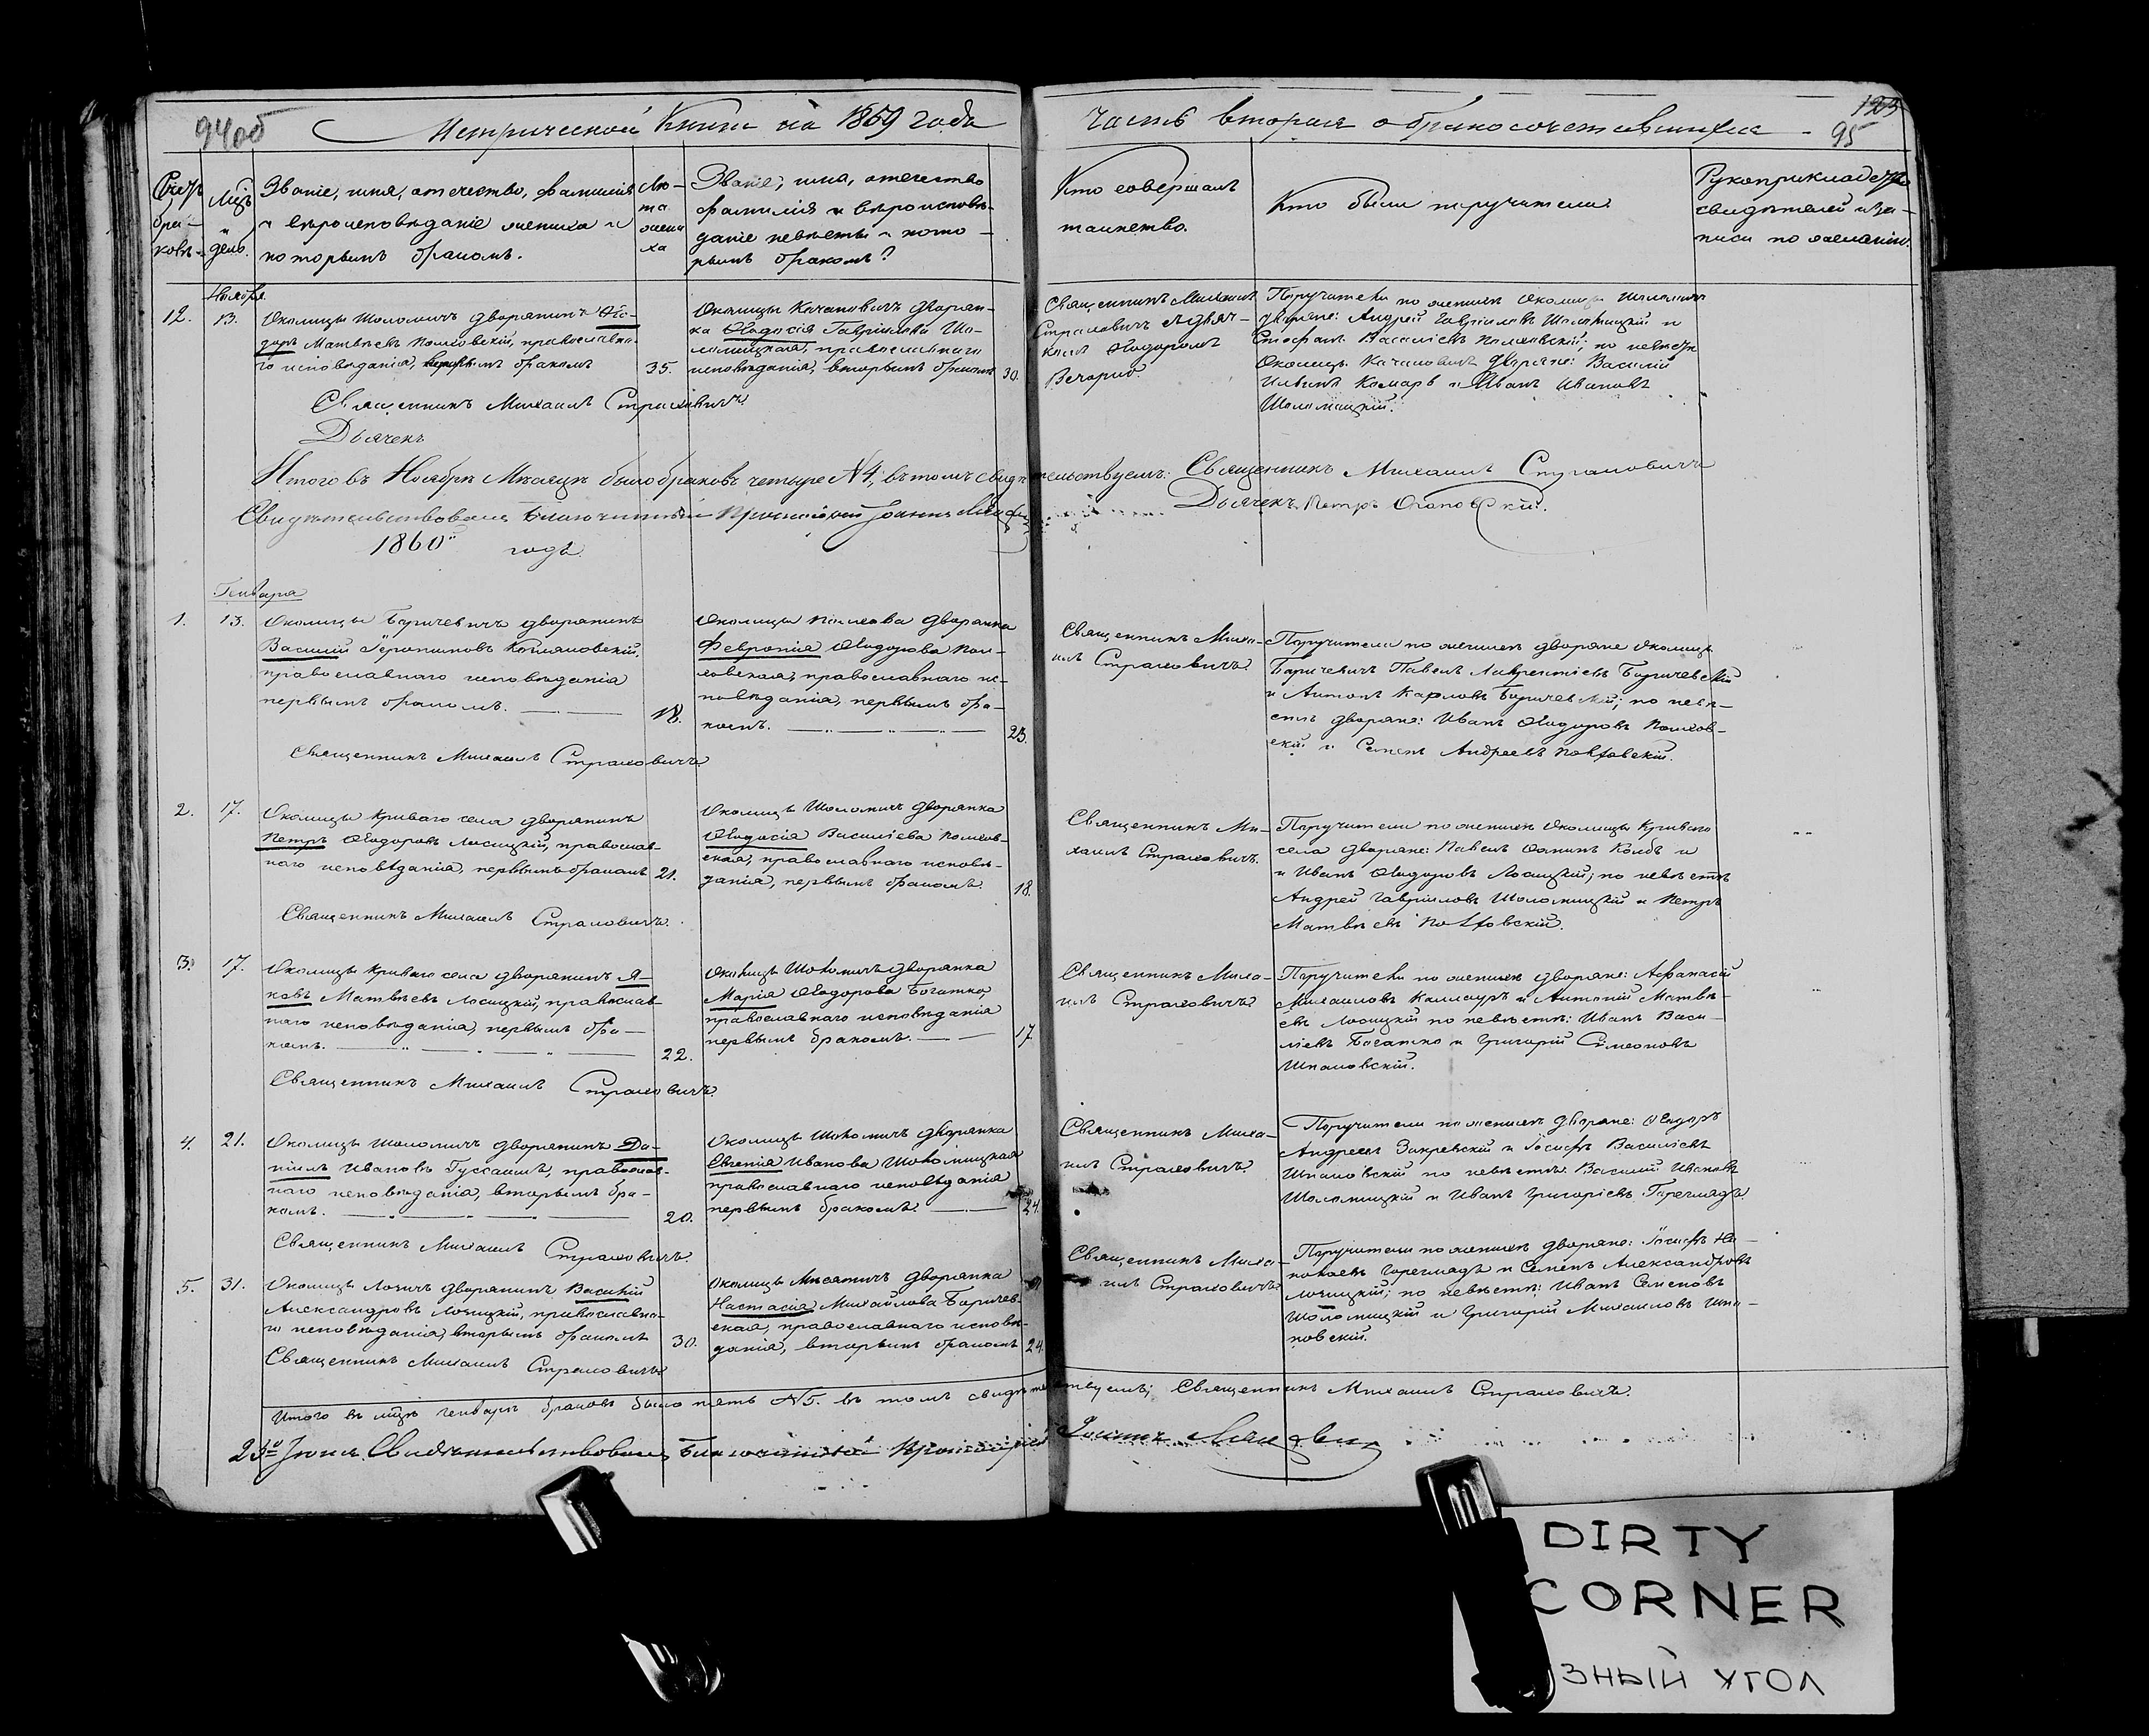 94об
Метрической Книги на 1859 года
Часть вторая о бракосочетавшихся
123
95
Счетъ браковъ.
Мцъ и день.
Званіе, имя, отечество, фамилія
и вѣроисповѣданіе жениха и
которымъ бракомъ.
Лѣта жениха
Званіе, имя, отечество
фамилія и вѣроисповѣ-
даніе невѣсты и кото-
рымъ бракомъ?
Кто совершалъ
таинство.
Кто были поручители.
Рукоприкладство
свидѣтелей за-
писи по желанію.
Ноября
12. 13.
Околицы Шоломичъ дворянинъ Ѳео-
доръ Матвѣевъ Полховскій, православна-
го исповѣданія, бракомъ
35.
Околицы Качановичъ дворян-
ка Ѳеодосія Гавріилова Шо-
ломицкая, православнаго
исповѣданія, вторымъ бракомъ
30.
Священникъ Михаилъ
Страховичъ дьяч-
комъ Ѳеодоромъ
Поручители по женихѣ Околицы Шоломичъ
дворяне: Андрей Гавріиловъ Шоломицкій и
Стефанъ Василіевъ Полховскій; по невѣстѣ
Околицы Качановичъ дворяне: Василій
Комаръ и Иванъ Ивановъ
Шоломицкій.
Священникъ Михаилъ Страховичъ
Дьячекъ
Итого въ Ноябрѣ Мѣсяцѣ было браковъ четыре N4, въ томъ свидѣтельствуемъ: Священникъ Михаилъ Страховичъ
Дьячекъ Петръ
Свидѣтельствовалъ Благочинный Протоіерей Іоаннъ
1860 годъ.
Генваря
1. 13.
Околицы Боричевичъ дворянинъ
Василій
православнаго исповѣданія
первымъ бракомъ.
18.
Околицы Полхова дворянка
Февронія Ѳеодорова Пол-
ховская, православнаго ис-
повѣданія, первымъ бра-
комъ.
23.
Священникъ Миха-
илъ Страховичъ
Поручители по женихѣ дворяне Околицы
Боричевичъ Павелъ Лаврентіевъ Боричевскій
и Антонъ Карловъ Боричевскій; по невѣ-
стѣ дворяне: Иванъ Ѳеодоровъ Полхов-
скій и Семенъ Андреевъ Полховскій.
Священникъ Михаилъ Страховичъ
2. 17.
Околицы Криваго села дворянинъ
Петръ Ѳеодоровъ Лосицкій, православ-
наго исповѣданія, первымъ бракомъ
21.
Околицы Шоломичъ дворянка
Ѳеодосія Василіева Полхов-
ская, православнаго исповѣ-
данія, первымъ бракомъ
18.
Священникъ Ми-
хаилъ Страховичъ.
Поручители по женихѣ Околицы Криваго
села дворяне: Павелъ Ѳоминъ Колбъ и
и Иванъ Ѳеодоровъ Лосицкій; по невѣстѣ
Андрей Гавріиловъ Шоломицкій и Петръ
Матвѣевъ Полховскій.
Священникъ Михаилъ Страховичъ.
3. 17.
Околицы Криваго села дворянинъ Я-
ковъ Матвѣевъ Лосицкій, православ-
наго исповѣданія, первымъ бра-
комъ.
22.
Околицы Шоломичъ дворянка
Марія Ѳеодорова Богатко,
православнаго исповѣданія
первымъ бракомъ.
17
Священникъ Миха-
илъ Страховичъ
Поручители по женихѣ дворяне: Афанасій
Михаиловъ и Антоній Матвѣ-
евъ Лосицкій по невѣстѣ: Иванъ Васи-
ліевъ Богатко и Григорій Симеоновъ
Шпаловскій.
Священникъ Михаилъ Страховичъ
4. 21.
Околицы Шоломичъ дворянинъ Да-
ніилъ Ивановъ Гуссаимъ, православ-
наго исповѣданія, вторымъ бра-
комъ.
20.
Околицы Шоломичъ дворянка
Евгенія Иванова Шоломицкая
православнаго исповѣданія
первымъ бракомъ.
24.
Священникъ Миха-
илъ Страховичъ
Поручители по женихѣ дворяне: Ѳеодоръ
Андреевъ Закревскій и Іосифъ Василіевъ
Шпаловскій по невѣстѣ: Василій Ивановъ
Шоломицкій и Иванъ Григоріевъ Гореглядъ
Священникъ Михаилъ Страховичъ.
5. 31.
Околицы Лозичъ дворянинъ Василій
Александровъ Лочицкій, православна-
го исповѣданія, вторымъ бракомъ
30.
Околицы Мисятичъ дворянка
Настасія Михайлова Боричев-
ская, православнаго исповѣ-
данія, вторымъ бракомъ
24.
Священникъ Миха-
илъ Страховичъ
Поручители по женихѣ дворяне: Іосифъ
Гореглядъ и Семенъ Александровъ
Лочицкій; по невѣстѣ: Иванъ Семеновъ
Шоломицкій и Григорій Михаиловъ Шпа-
ловскій.
Священникъ Михаилъ Страховичъ
Итого въ мцѣ Генварѣ браковъ было пять N5. въ томъ свидѣтельствуемъ; Священникъ Михаилъ Страховичъ.
23го Іюня Свидѣтельствовалъ Благочинный Протоіерей Іоаннъ
DIRTY
CORNER
ЗНЫЙ УГОЛ